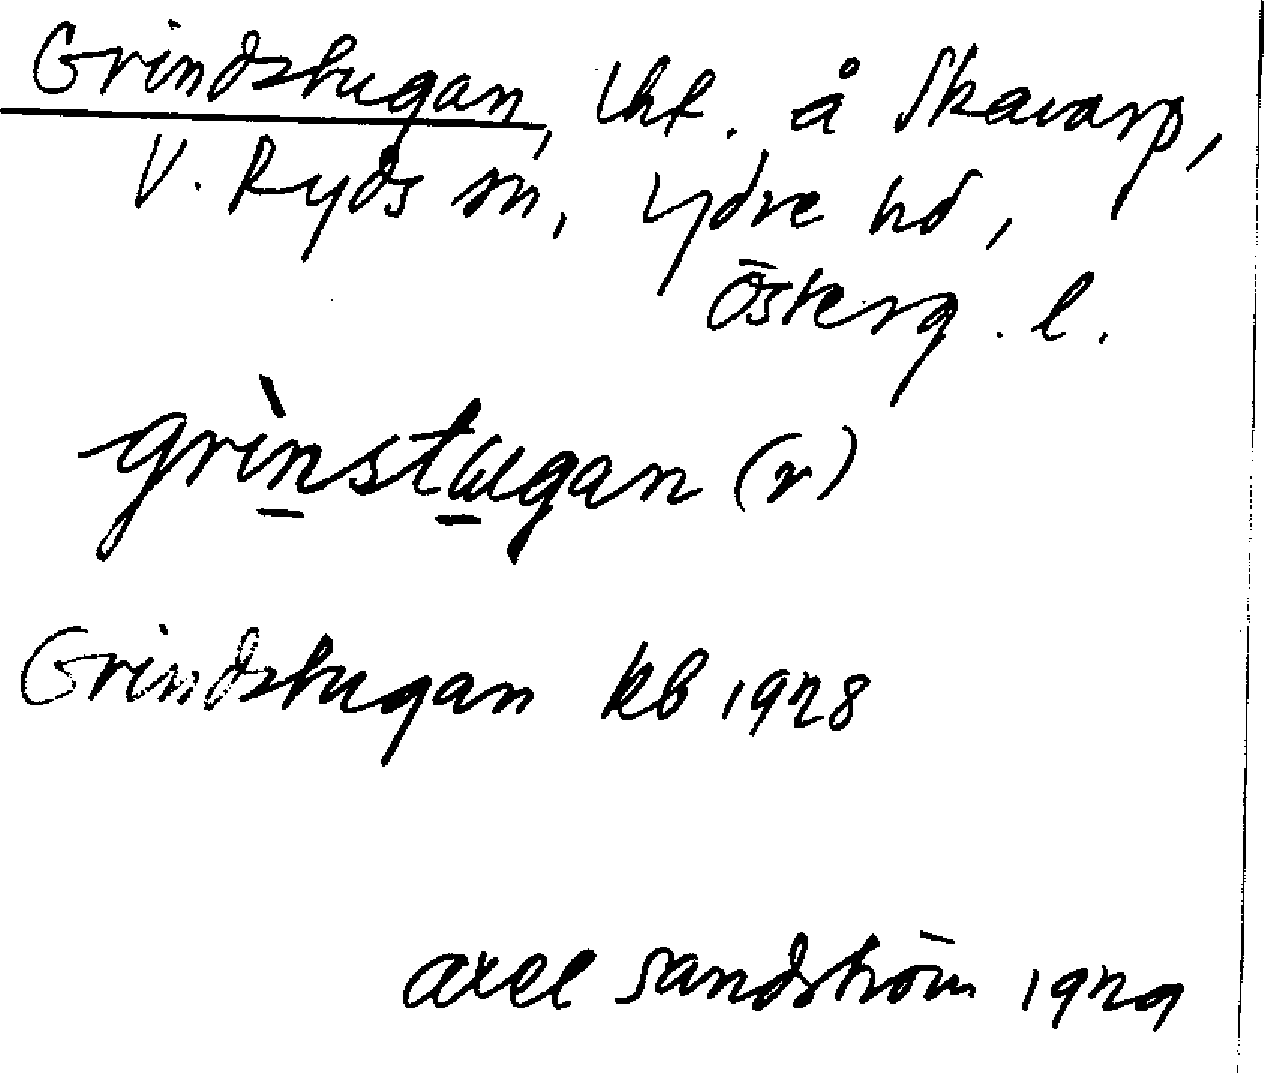 Grindstugan, lht. å Skavarp,
V. Ryds sn, Ydre hd,
Österg. l.
grìnstugan (r)
Grindstugan kb 1928
Axel Sandström 1929